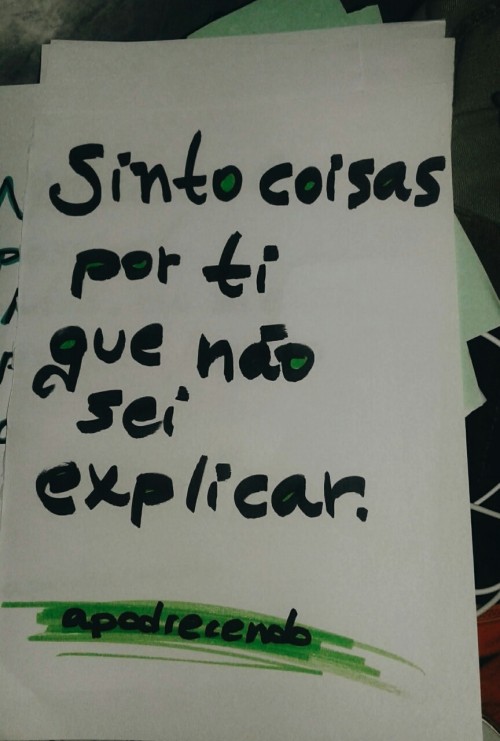 Sinto coisas
por ti
que não
sei
explicar.
apodrecendo